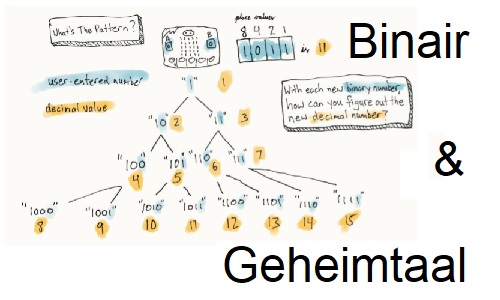 What's The Pattern?
place values
8 4 2 1
A B
1 0 1 1 is 11
Binair
user-entered number
decimal value
"1" 1
With each new binary number,
how can you figure out the
new decimal number?
"10" 2 "11" 3
"100" "101" "110" "111" 7
4 5 6
&
"1000" "1001" "1010" "1011" "1100" "1101" "1110" "1111"
8 9 10 11 12 13 14 15
Geheimtaal